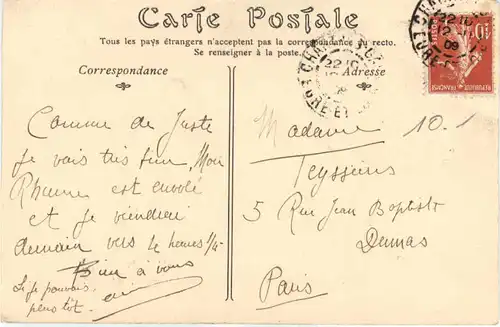 Carte Postale
Tous les pays étrangers n'acceptent pas la correspondance au recto.
Se renseigner à la poste.
Correspondance
Adresse
Comme de Juste
je vais très bien, Mon
Rhume est envolé
et je viendrai
demain vers 4 heures 1/4
Bien à vous
Si je pouvais
plus tôt.
Madame 10.1
Teysseins
5 Rue Jean Baptiste
Dumas
Paris